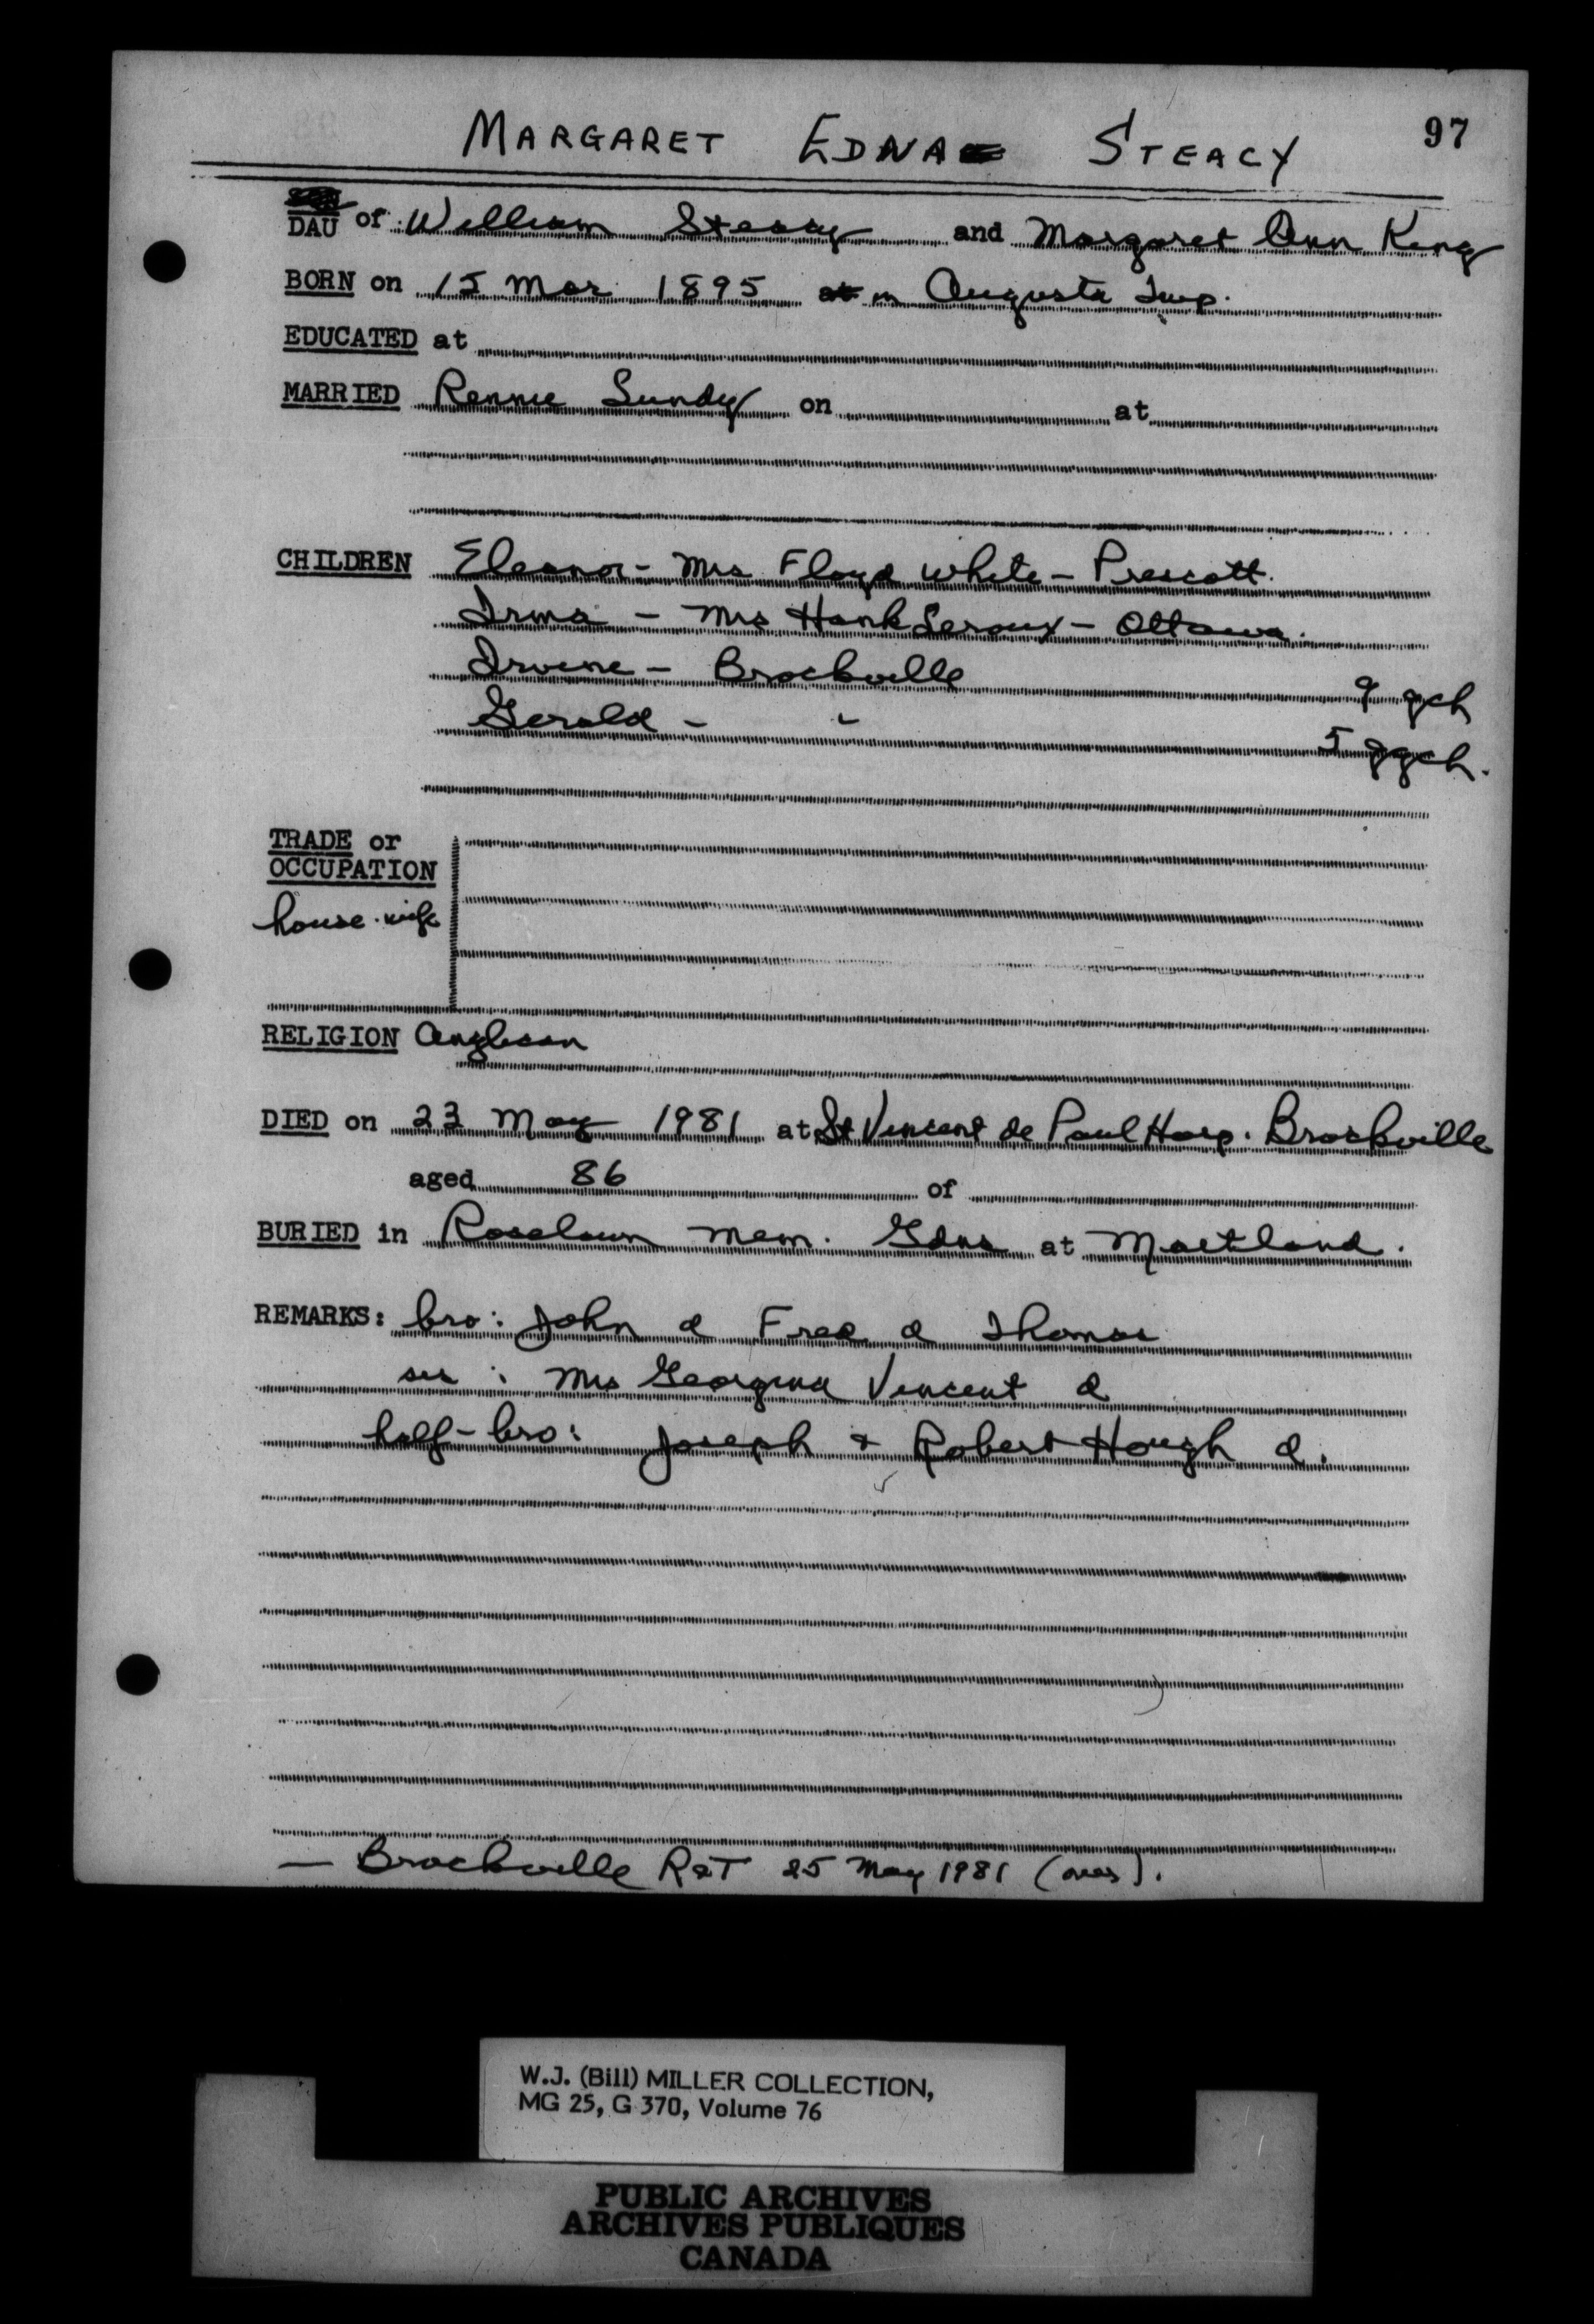 MARGARET EDNA STEACY 97
DAU of William Steacy and Margaret Ann King
BORN on 15 Mar 1895 at in Augusta Twp.
EDUCATED at
MARRIED Rennie Lundy on at
CHILDREN Eleanor - Mrs Floyd White - Prescott.
Irma - Mrs Hank Leroux - Ottawa.
Irvine - Brockville 9 gch
Gerald - " 5 ggch.
TRADE or
OCCUPATION
house-wife
RELIGION Anglican
DIED on 23 May 1981 at St Vincent de Paul Hosp. Brockville
aged 86 of
BURIED in Roselawn Mem. Gdns at Maitland.
REMARKS: bro: John d Fred d Thomas
sis: Mrs Georgina Vincent d
half-bro: Joseph + Robert Hough d.
— Brockville R&T 25 May 1981 (over).
W.J. (Bill) MILLER COLLECTION,
MG 25, G 370, Volume 76
PUBLIC ARCHIVES
ARCHIVES PUBLIQUES
CANADA